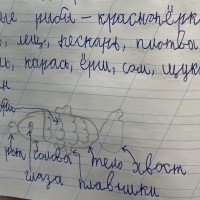 рыбы – краснопёрк
, лещ, пескарь, плотва
ь, карась, ёрш, сом, щук
рот голова тело хвост
глаза плавники